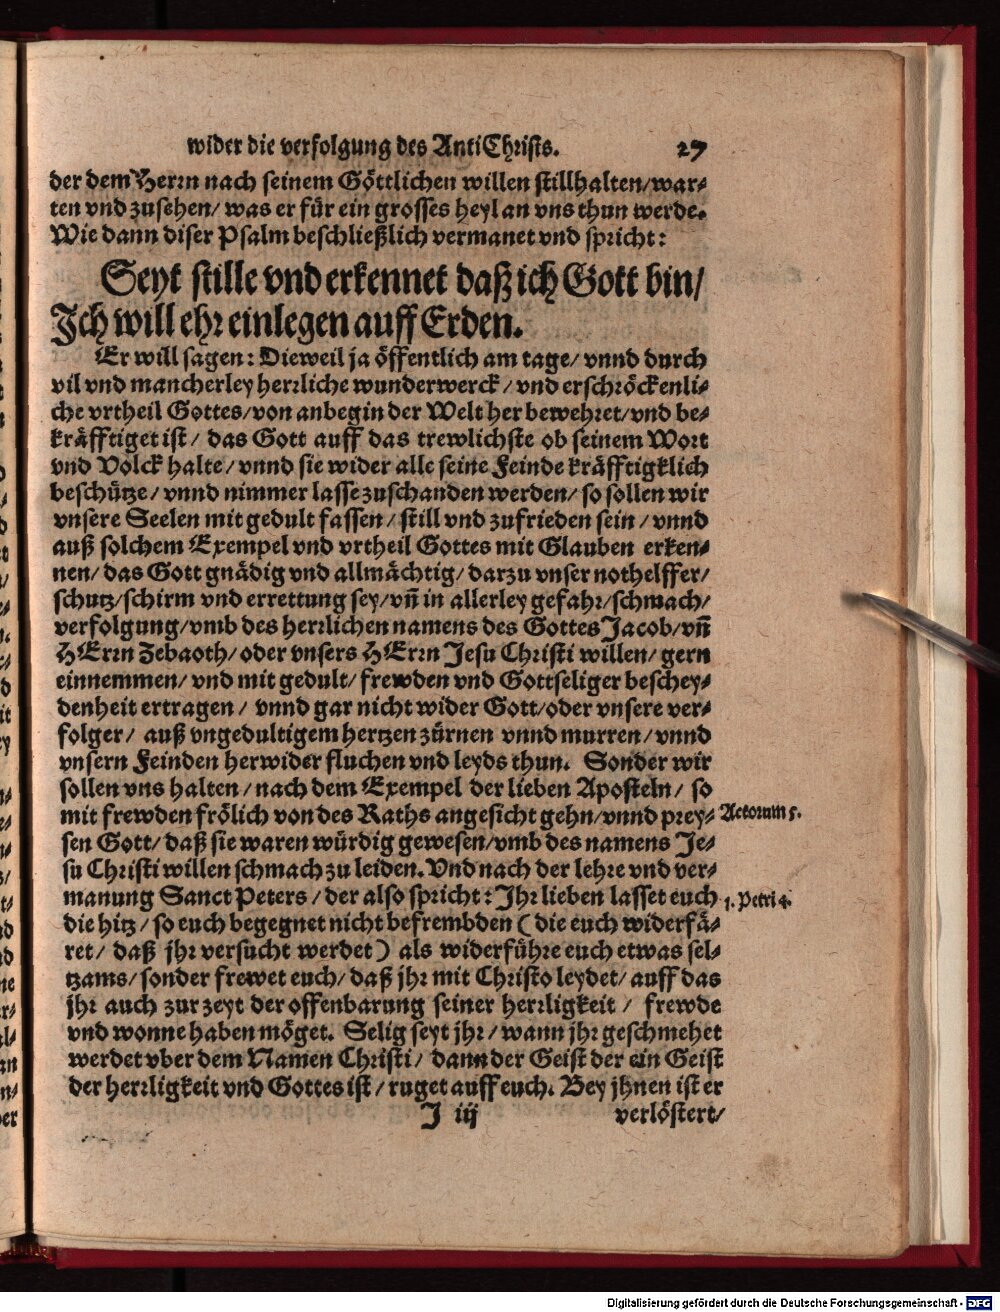 wider die verfolgung des AntiChrists. 27
der dem Herrn nach seinem Göttlichen willen stillhalten/war-
ten vnd zusehen/ was er für ein grosses heyl an vns thun werde.
Wie dann diser Psalm beschließlich vermanet vnd spricht:
Seyt stille vnd erkennet daß ich Gott bin/
Ich will ehr einlegen auff Erden.
Er will sagen: Dieweil ja öffentlich am tage/ vnnd durch
vil vnd mancherley herrliche wunderwerck/ vnd erschröckenli-
che vrtheil Gottes/von anbegin der Welt her bewehret/vnd be-
kräfftiget ist/ das Gott auff das trewlichste ob seinem Wort
vnd Volck halte/ vnnd sie wider alle seine Feinde kräfftigklich
beschütze/ vnnd nimmer lasse zuschanden werden/ so sollen wir
vnsere Seelen mit gedult fassen/ still vnd zufrieden sein/ vnnd
auß solchem Exempel vnd vrtheil Gottes mit Glauben erken-
nen/ das Gott gnädig vnd allmächtig/ darzu vnser nothelffer/
schutz/schirm vnd errettung sey/vñ in allerley gefahr/schmach/
verfolgung/vmb des herrlichen namens des Gottes Jacob/vñ
HErrn Zebaoth/ oder vnsers HErrn Jesu Christi willen/ gern
einnemmen/ vnd mit gedult/ frewden vnd Gottseliger beschey-
denheit ertragen/ vnnd gar nicht wider Gott/oder vnsere ver-
folger/ auß vngedultigem hertzen zürnen vnnd murren/ vnnd
vnsern Feinden herwider fluchen vnd leyds thun. Sonder wir
sollen vns halten/ nach dem Exempel der lieben Aposteln/ so
mit frewden frölich von des Raths angesicht gehn/vnnd prey- Actorum 5.
sen Gott/ daß sie waren würdig gewesen/vmb des namens Je-
su Christi willen schmach zu leiden. Vnd nach der lehre vnd ver-
manung Sanct Peters/ der also spricht: Ihr lieben lasset euch 1. Petri 4.
die hitz/ so euch begegnet nicht befrembden (die euch widerfä-
ret/ daß jhr versucht werdet) als widerführe euch etwas sel-
tzams/ sonder frewet euch/ daß jhr mit Christo leydet/ auff das
jhr auch zur zeyt der offenbarung seiner herrligkeit/ frewde
vnd wonne haben möget. Selig seyt jhr/ wann jhr geschmehet
werdet vber dem Namen Christi/ dann der Geist der ein Geist
der herrligkeit vnd Gottes ist/ ruget auff euch. Bey jhnen ist er
J iij verlöstert/
Digitalisierung gefördert durch die Deutsche Forschungsgemeinschaft - DFG